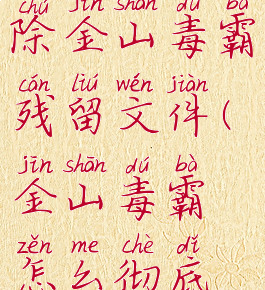 chú jīn shān dú bà
除金山毒霸
cán liú wén jiàn
残留文件(
jīn shān dú bà
金山毒霸
zěn me chè dǐ
怎么彻底